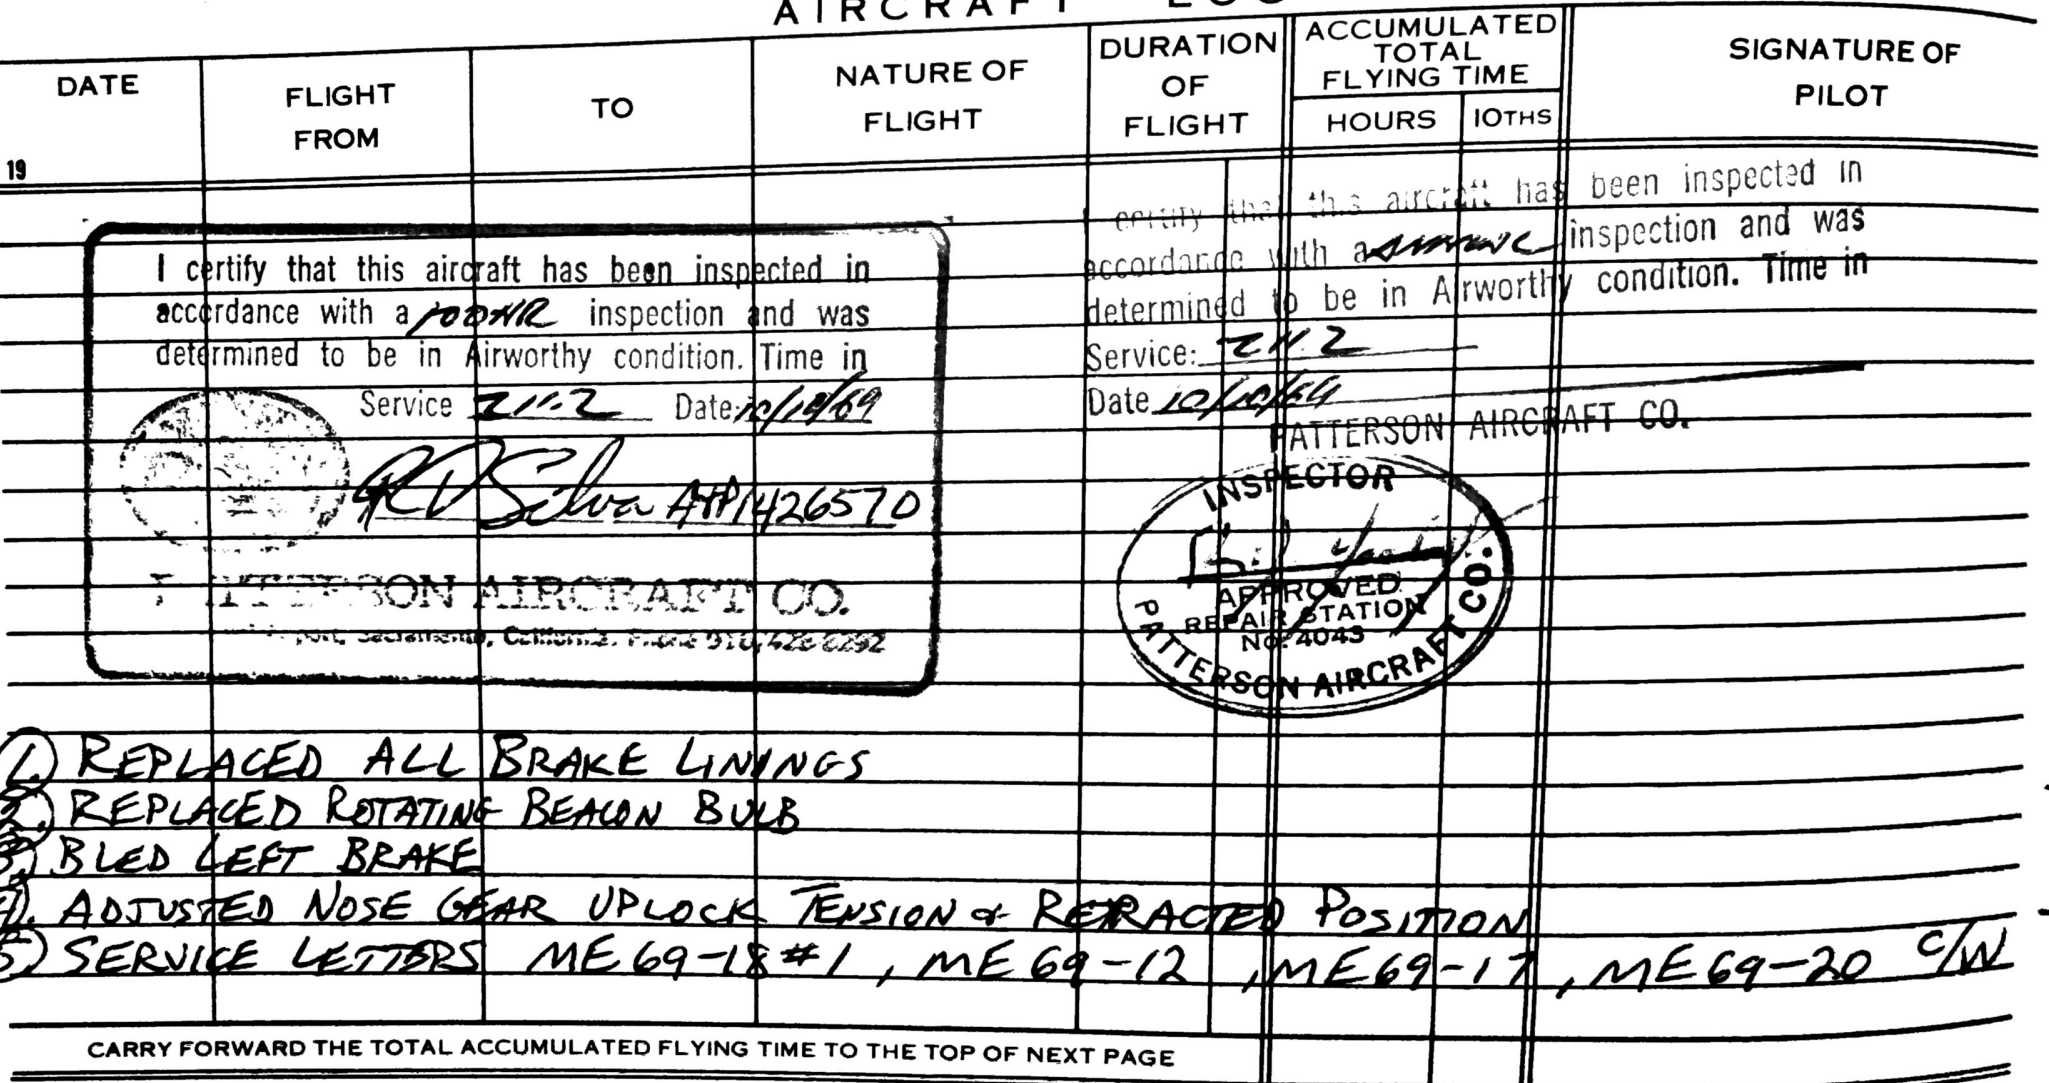 AIRCRAFT
DATE
FLIGHT
FROM
TO
NATURE OF
FLIGHT
DURATION
OF
FLIGHT
ACCUMULATED
TOTAL
FLYING TIME
HOURS
10THS
SIGNATURE OF
PILOT
19
I certify that this aircraft has been inspected in
accordance with a 100 HR inspection and was
determined to be in Airworthy condition. Time in
Service 211.2 Date: 10/10/69
R D Silva A+P 1426570
PATTERSON AIRCRAFT CO.
Sacramento, California. Phone 916/428-8292
certify that this aircraft has been inspected in
accordance with a inspection and was
determined to be in Airworthy condition. Time in
Service: 211.2
Date 10/10/69
PATTERSON AIRCRAFT CO.
INSPECTOR
APPROVED
REPAIR STATION
No. 4043
PATTERSON AIRCRAFT CO.
1. REPLACED ALL BRAKE LININGS
2. REPLACED ROTATING BEACON BULB
3. BLED LEFT BRAKE
4. ADJUSTED NOSE GEAR UPLOCK TENSION & RETRACTED POSITION
5. SERVICE LETTERS ME69-18#1, ME69-12, ME69-17, ME69-20 C/W
CARRY FORWARD THE TOTAL ACCUMULATED FLYING TIME TO THE TOP OF NEXT PAGE